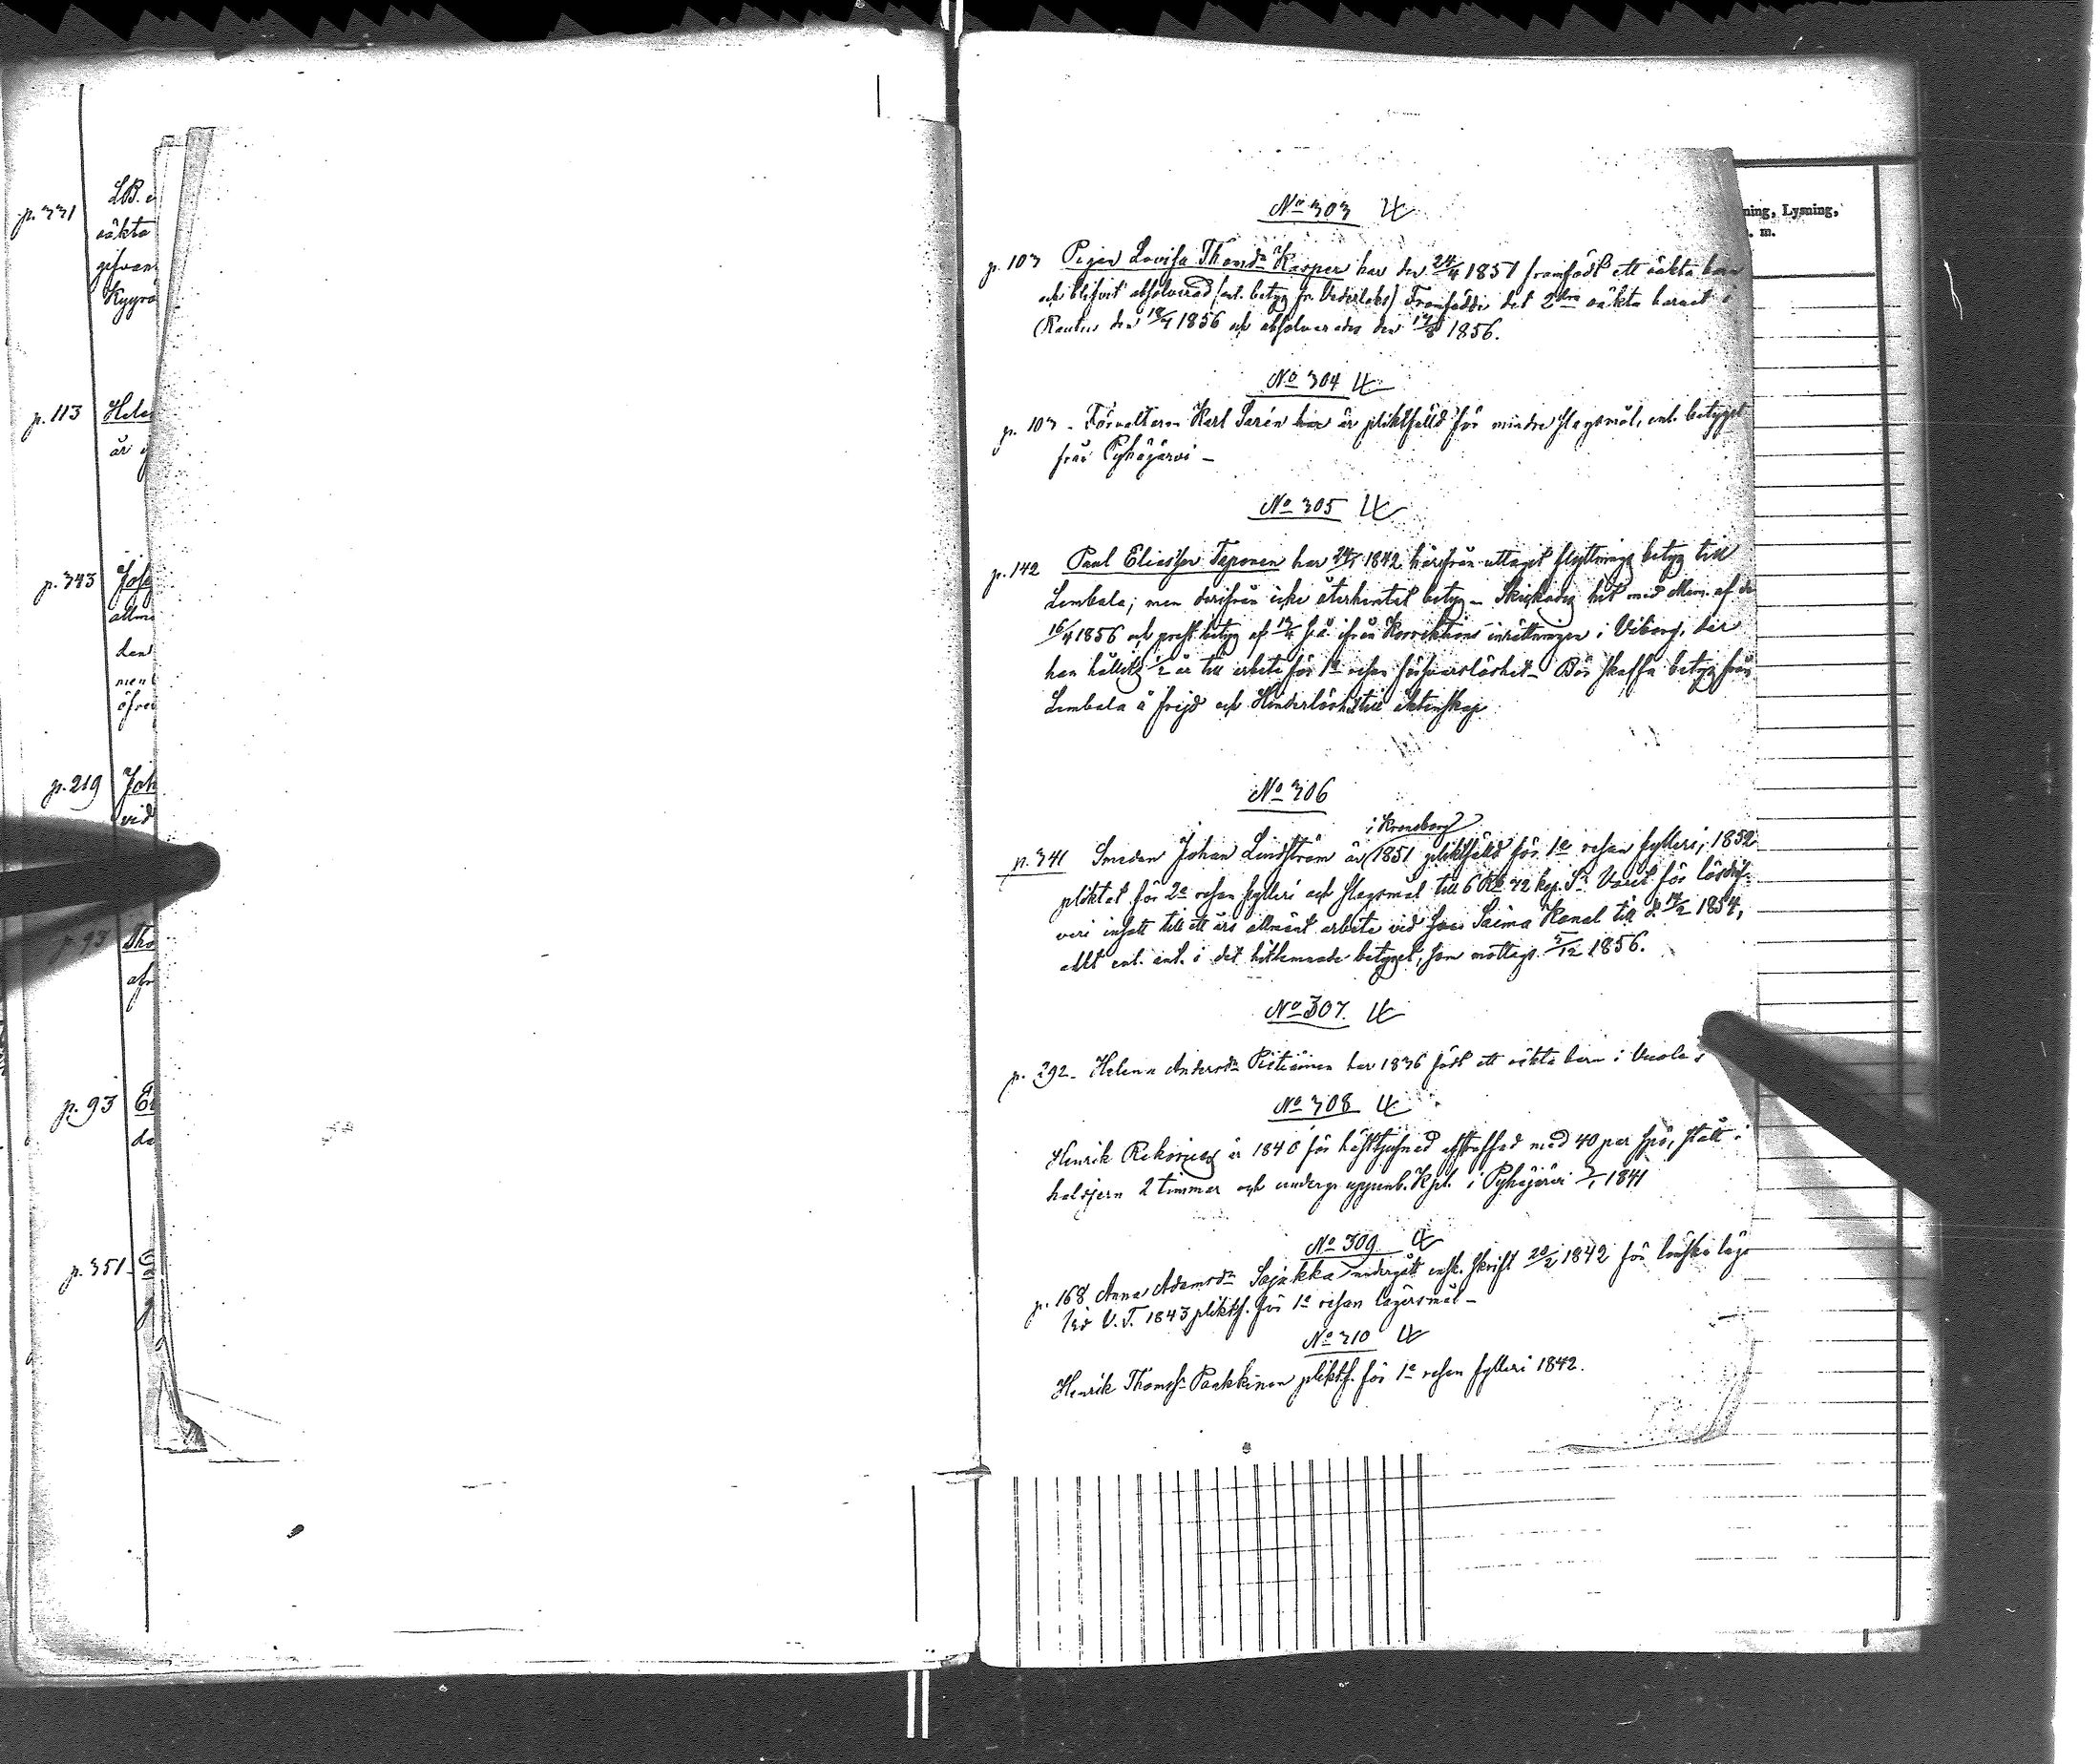 p. 331
LB. e
oäkta
gifven
Kyyrö
p. 113
Hele
är
p. 343
Jose
allm
den
men
öfver
p. 219
Joh
vid
p. 93
Tho
afv
p. 93
da
p. 351
ning, Lysning,
. m.
No 303
p. 103 Pigan Lovisa Thomdr Kasper har den 24/4 1851 framfödt ett oäkta barn
och blifvit absolverad (enl. betyg fr. Vederlaks) Framfödde det 2dra oäkta barnet i
Rautus den 18/4 1856 och absolverades den 1856.
No 304
p. 103 - Förvaltaren Karl Sarén har är pliktfälld för mindre slagsmål, enl. betyget
från Pyhäjärvi -
No 305
p. 142 Paul Eliasson Taponen har 1842 härifrån uttaget flyttnings betyg till
Lembala; men derifrån icke återhemtat betyg - Skickades hit med Mem. af d.
16/4 1856 och prest betyg af s. å. ifrån Korrektions inrättningen i Viborg, der
han hållits 1/2 år till arbete för 1a resan försvarslöshet - Bör skaffa betyg från
Lembala å frejd och Hinderlöshet till äktenskap
No 306
i Kronoborg
p. 341 Smeden Johan Lindström är 1851 pliktfälld för 1a resan fylleri, 1852
pliktat för 2a resan fylleri och slagsmål till 6 Rb 42 kop. Sr Varit för lösdrif-
veri insatt till ett års allmänt arbete vid Saima Kanal till d. 1854,
allt enl. ant. i det hitlemnade betyget, som mottags 5/12 1856.
No 307.
p. 292 - Helena Andersdr Pistiäinen har 1836 födt ett oäkta barn i Uusula
No 308
Henrik Rekonen är 1840 för hästtjufnad afstraffad med 40 par spö, stått i
halsjern 2 timmar och underg. uppenb. Kpl. i Pyhäjärvi 1841
No 309
p. 168 Anna Adamsdr Sajakka undergått ensk. skrift 20/2 1842 för lönska läge
Vid V. T. 1843 pliktf. för 1a resan lägersmål -
No 310
Henrik Thomss Paakkinen pliktf. för 1a resan fylleri 1842.